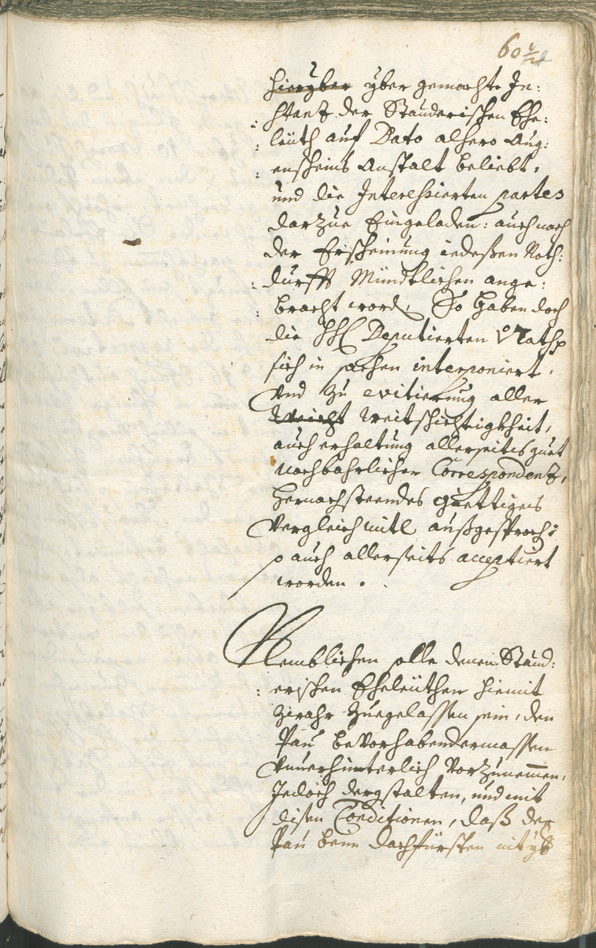 60
hieryber yber gemachte In:
stanz der Stauderischen Ehe:
leüth auf Dato alhero Aug:
enscheins Anstalt beliebt,
und die Interessierten partes
darzue Eingeladen: auch nach
der Erscheinung indessen Noth:
durfft Mündtlichen ange:
bracht word. So haben doch
die Deputierten Rath
sich in sachen interponiert,
Vnd zu evitierung aller
Weitschichtigkheit,
auch erhaltung allerseits guet
nachbahrlicher Correspondenz,
hernachsteendes güettiges
Vergleichmitl außgesproch:
auch allerseits acceptiert
worden.
Nemblichen solle denen Staud:
erischen Eheleüthen hiemit
zwahr zuegelassen sein, den
Pau bevorhabendermassen
Vnuerhinterlich vorzunemen,
Jedoch dergstalten, und mit
disen Conditionen, daß der
Pau beim Dachfürsten nit yb